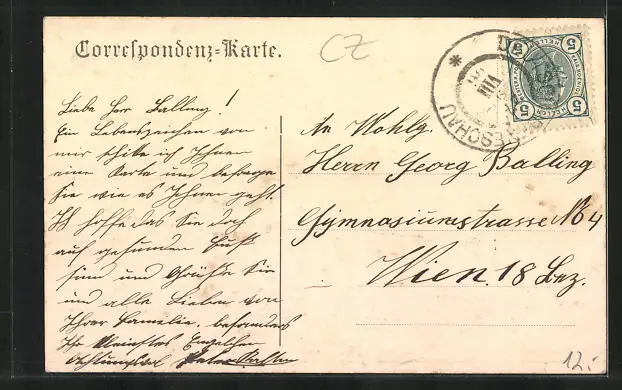 Correspondenz-Karte.
CZ
Liebe Herr Balling!
Ein Lebenszeichen von
mir schike ich Ihnen
eine Karte und befrage
Sie wie es Ihnen geht.
Ich hoffe das Sie doch
auf gesunden Fuß
sind und Grüße Sie
und alle Lieben von
Ihrer Familie, besonders
Ihr kleinstes Engelchen
An Wohlg.
Herrn Georg Balling
Gÿmnasiumstrasse No 4
Wien. 18 Bez.
5
5
5
HELLER
ESCHAU
VIII
12.-